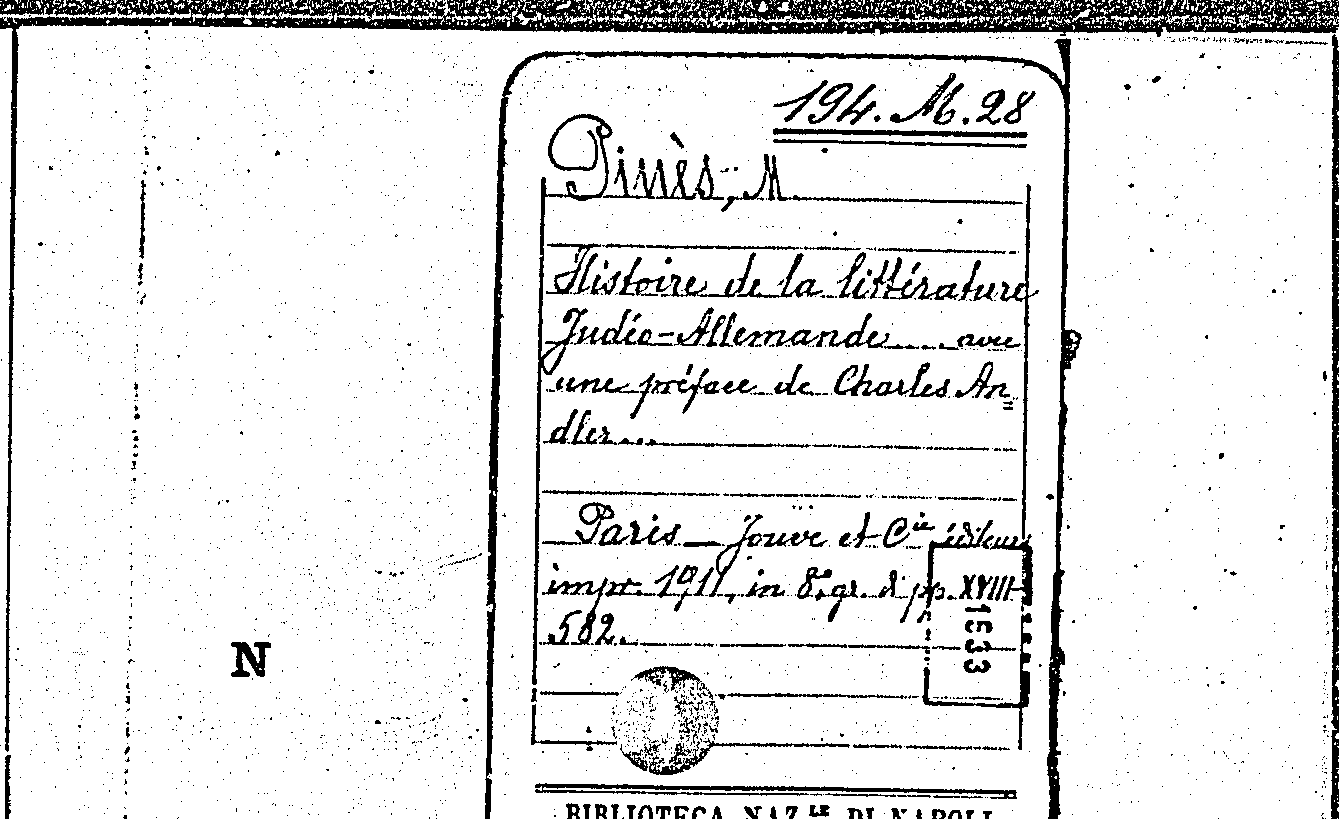 194. M. 28
Pinès, M.
Histoire de la littérature
Judéo-Allemande.... avec
une préface de Charles An=
dler...
Paris — Jouve et Cie éditeurs
impr. 1911, in 8°, gr. di pp. XVIII-
582.
1533
N
BIBLIOTECA NAZ.LE DI NAPOLI